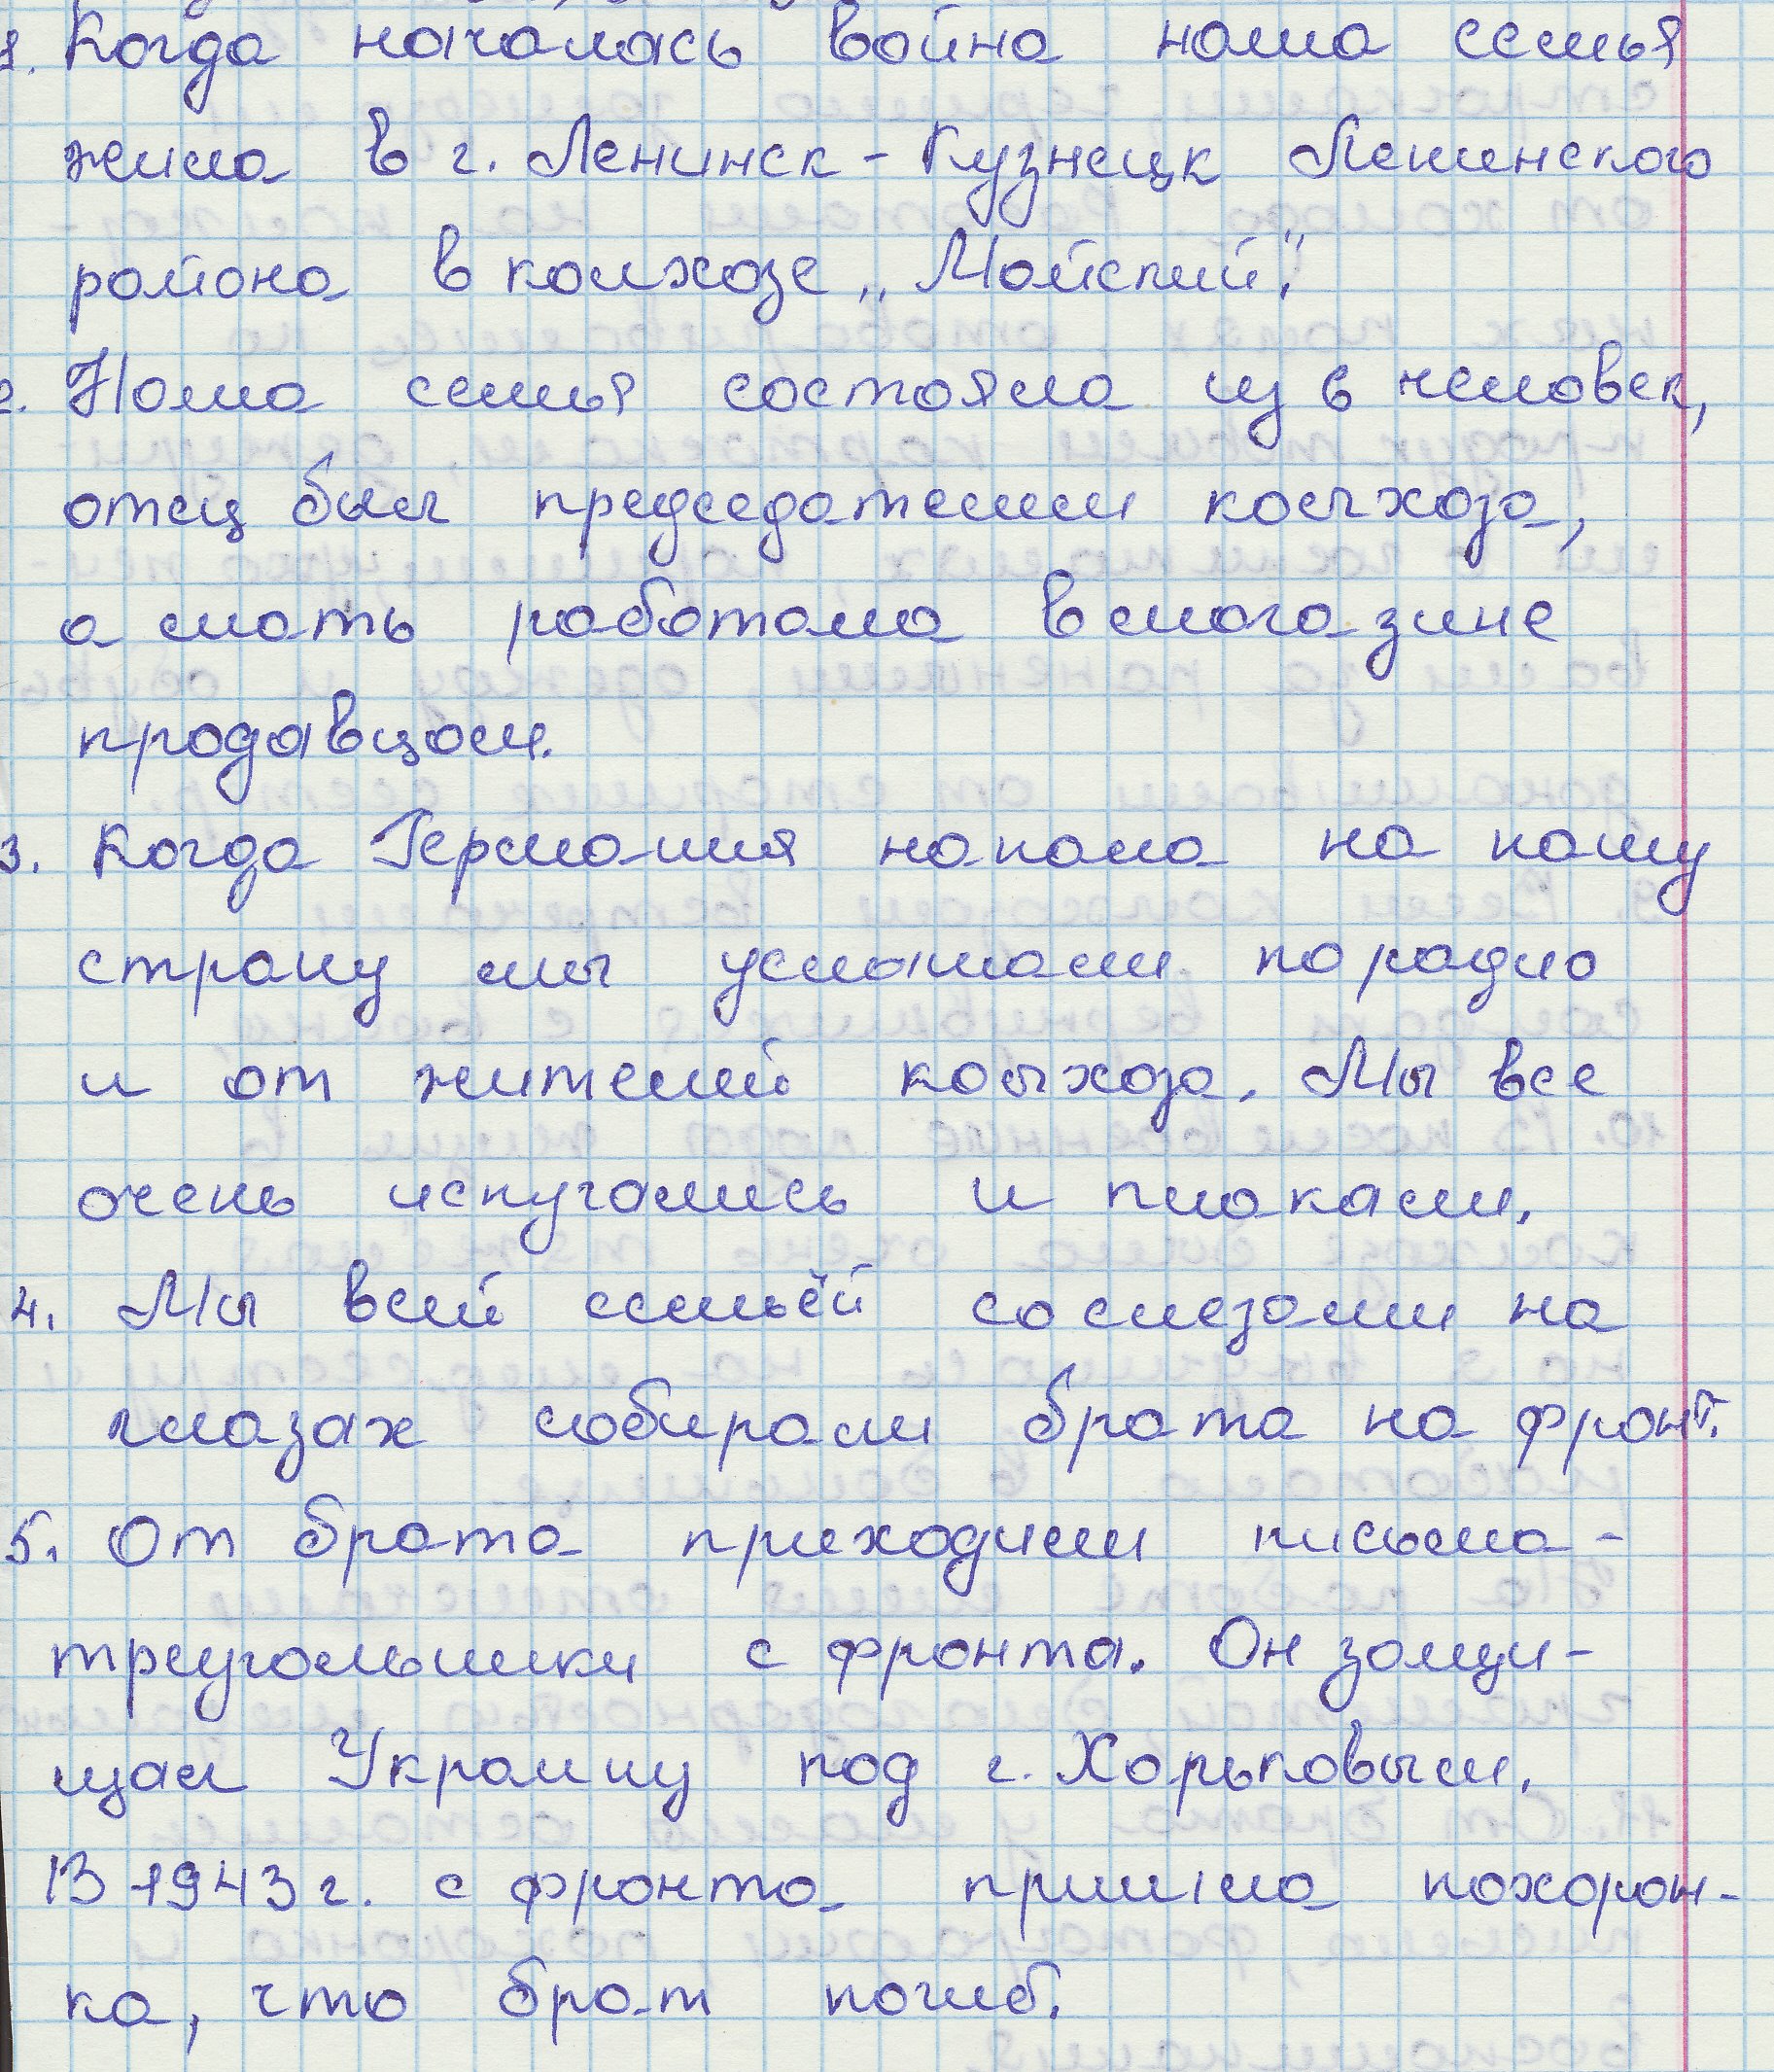 1. Когда началась война наша семья
жила в г. Ленинск-Кузнецк Ленинского
района в колхозе „Майский".
2. Наша семья состояла из 6 человек,
отец был председателем колхоза,
а мать работала в магазине
продавцом.
3. Когда Германия напала на нашу
страну мы услышали по радио
и от жителей колхоза. Мы все
очень испугались и плакали.
4. Мы всей семьёй со слезами на
глазах собирали брата на фронт.
5. От брата приходили письма-
треугольники с фронта. Он защи-
щал Украину под г. Харьковым.
В 1943 г. с фронта пришла похорон-
ка, что брат погиб.